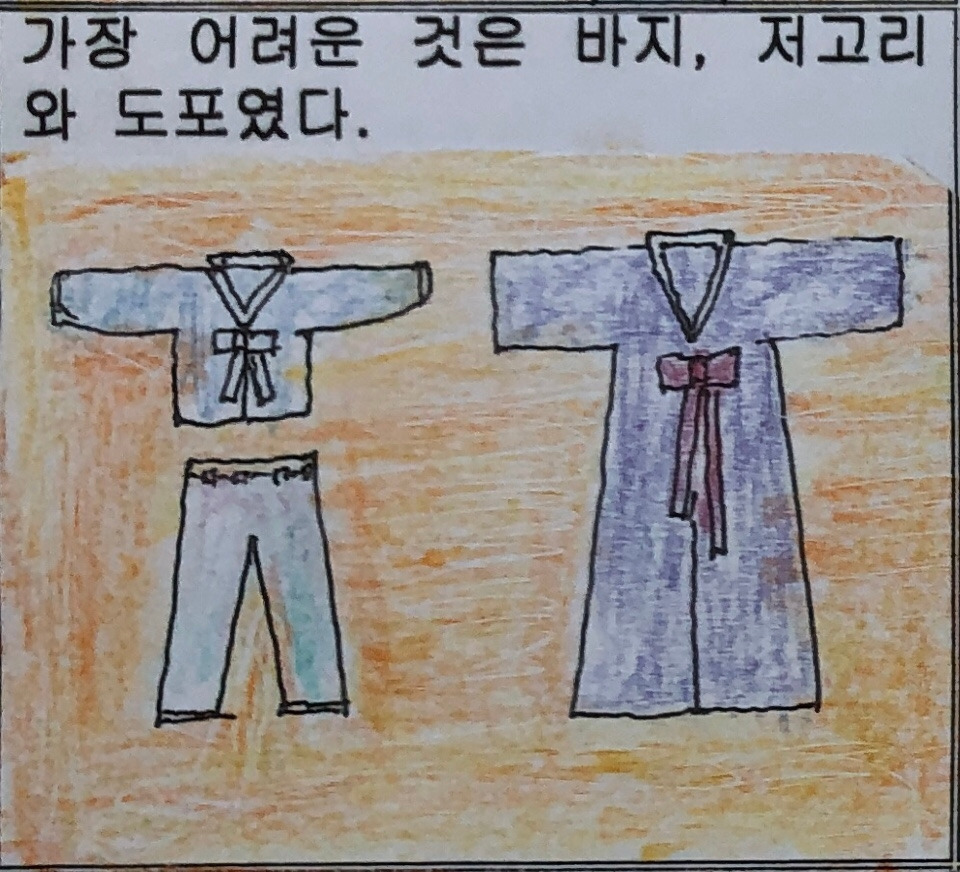 가장 어려운 것은 바지, 저고리
와 도포였다.